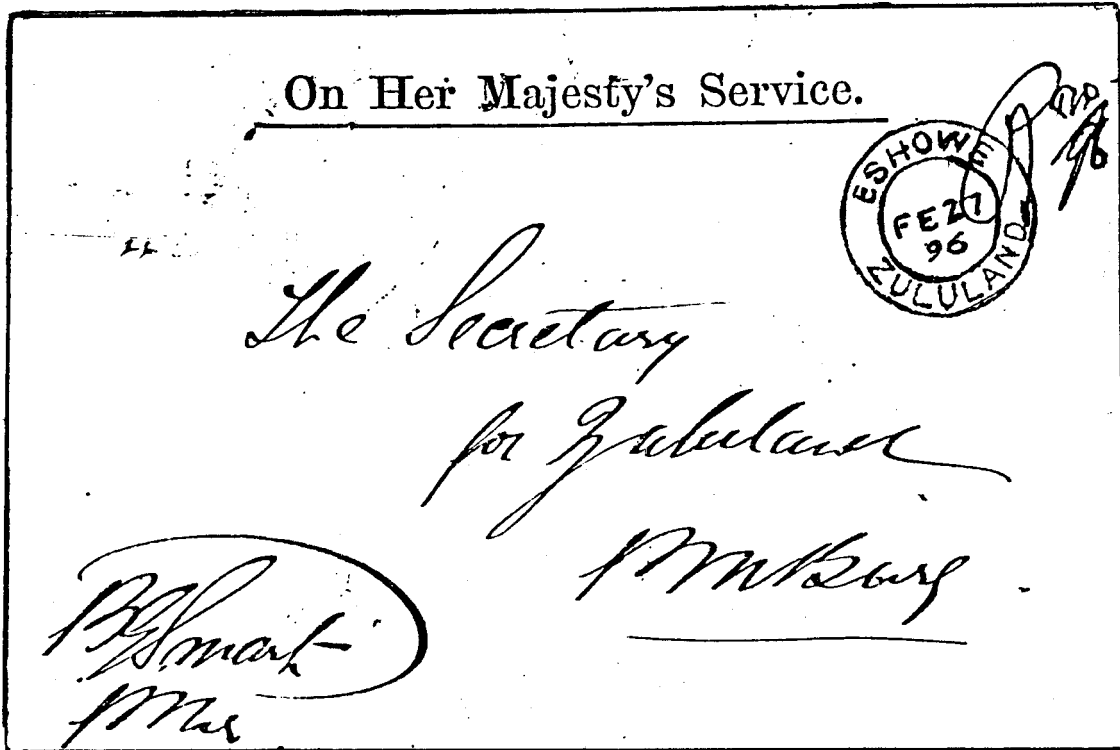 On Her Majesty's Service.
ESHOWE
FE 27
96
ZULULAND
The Secretary
for Zululand
PMBurg